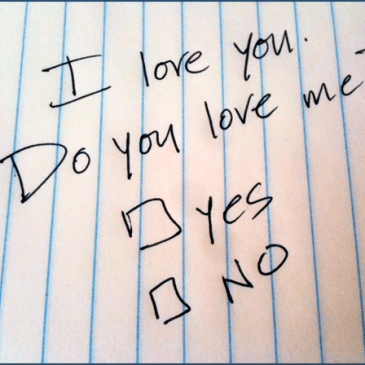 I love you.
Do you love me?
☐ yes
☐ NO